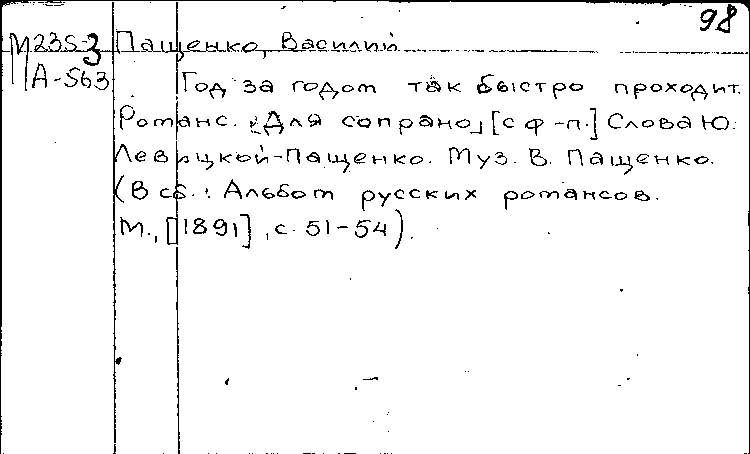 98
М235-3 Пащенко, Василий
А-563 Год за годом так быстро проходит.
Романс. [Для сопрано] [с ф-п.] Слова Ю.
Левицкой-Пащенко. Муз. В. Пащенко.
(В сб.: Альбом русских романсов.
М., [1891], с. 51-54).